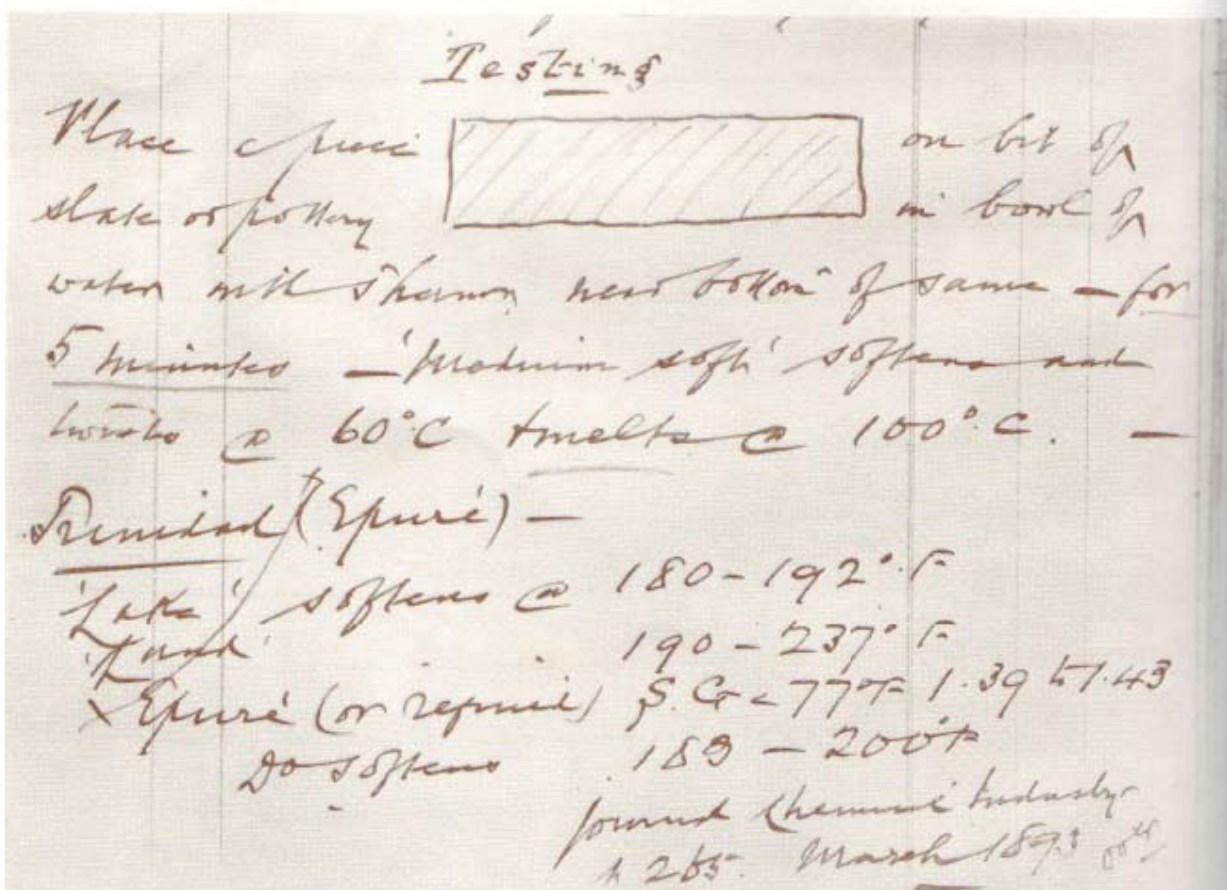 Testing
Place a piece on bit of
slate or pottery in bowl of
water with therm near bottom of same – for
5 minutes – 'Medium soft' softens and
twists @ 60°C & melts @ 100°C. –
Trinidad (Epuré) –
'Lake' softens @ 180–192° F
'Land' 190–237° F
x Epuré (or refined) S.G – 77°F 1.39 to 1.43
Do softens 189 – 200°F
Journal Chemical Industry
p 265. March 1893